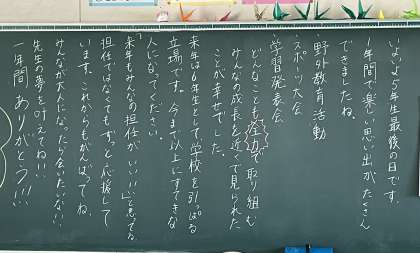 いよいよ5年生最後の日です。
1年間で楽しい思い出がたくさん
できましたね。
・野外教育活動
・スポーツ大会
・学習発表会
どんなことも全力で取り組む
みんなの成長を近くで見られた
ことが幸せでした。
来年は6年生として学校を引っぱる
立場です。今まで以上にすてきな
人になってください。
「来年もみんなの担任がいい!!」と思ってる
担任ではなくてもずっと応援して
います。これからもがんばってね。
みんなが大人になったら会いたいな!!
先生の夢を叶えてね!!
一年間ありがとう!!!